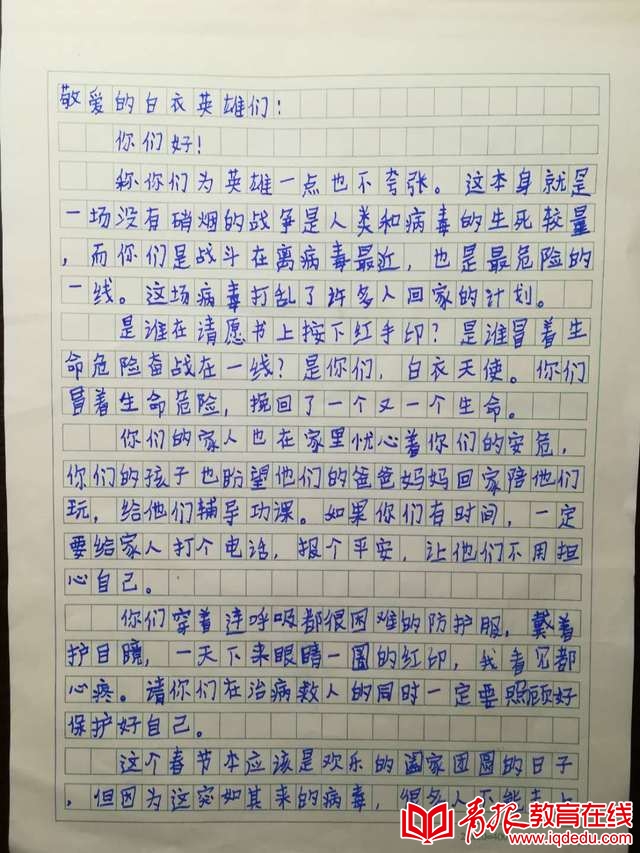 敬爱的白衣英雄们：
你们好！
称你们为英雄一点也不夸张。这本身就是
一场没有硝烟的战争是人类和病毒的生死较量
，而你们是战斗在离病毒最近，也是最危险的
一线。这场病毒打乱了许多人回家的计划。
是谁在请愿书上按下红手印？是谁冒着生
命危险奋战在一线？是你们，白衣天使。你们
冒着生命危险，挽回了一个又一个生命。
你们的家人也在家里忧心着你们的安危，
你们的孩子也盼望他们的爸爸妈妈回家陪他们
玩，给他们辅导功课。如果你们有时间，一定
要给家人打个电话，报个平安，让他们不用担
心自己。
你们穿着连呼吸都很困难的防护服，戴着
护目镜，一天下来眼睛一圈的红印，我看见都
心疼。请你们在治病救人的同时一定要照顾好
保护好自己。
这个春节本应该是欢乐的阖家团圆的日子
，但因为这突如其来的病毒，很多人不能
青报教育在线
www.iqdedu.com